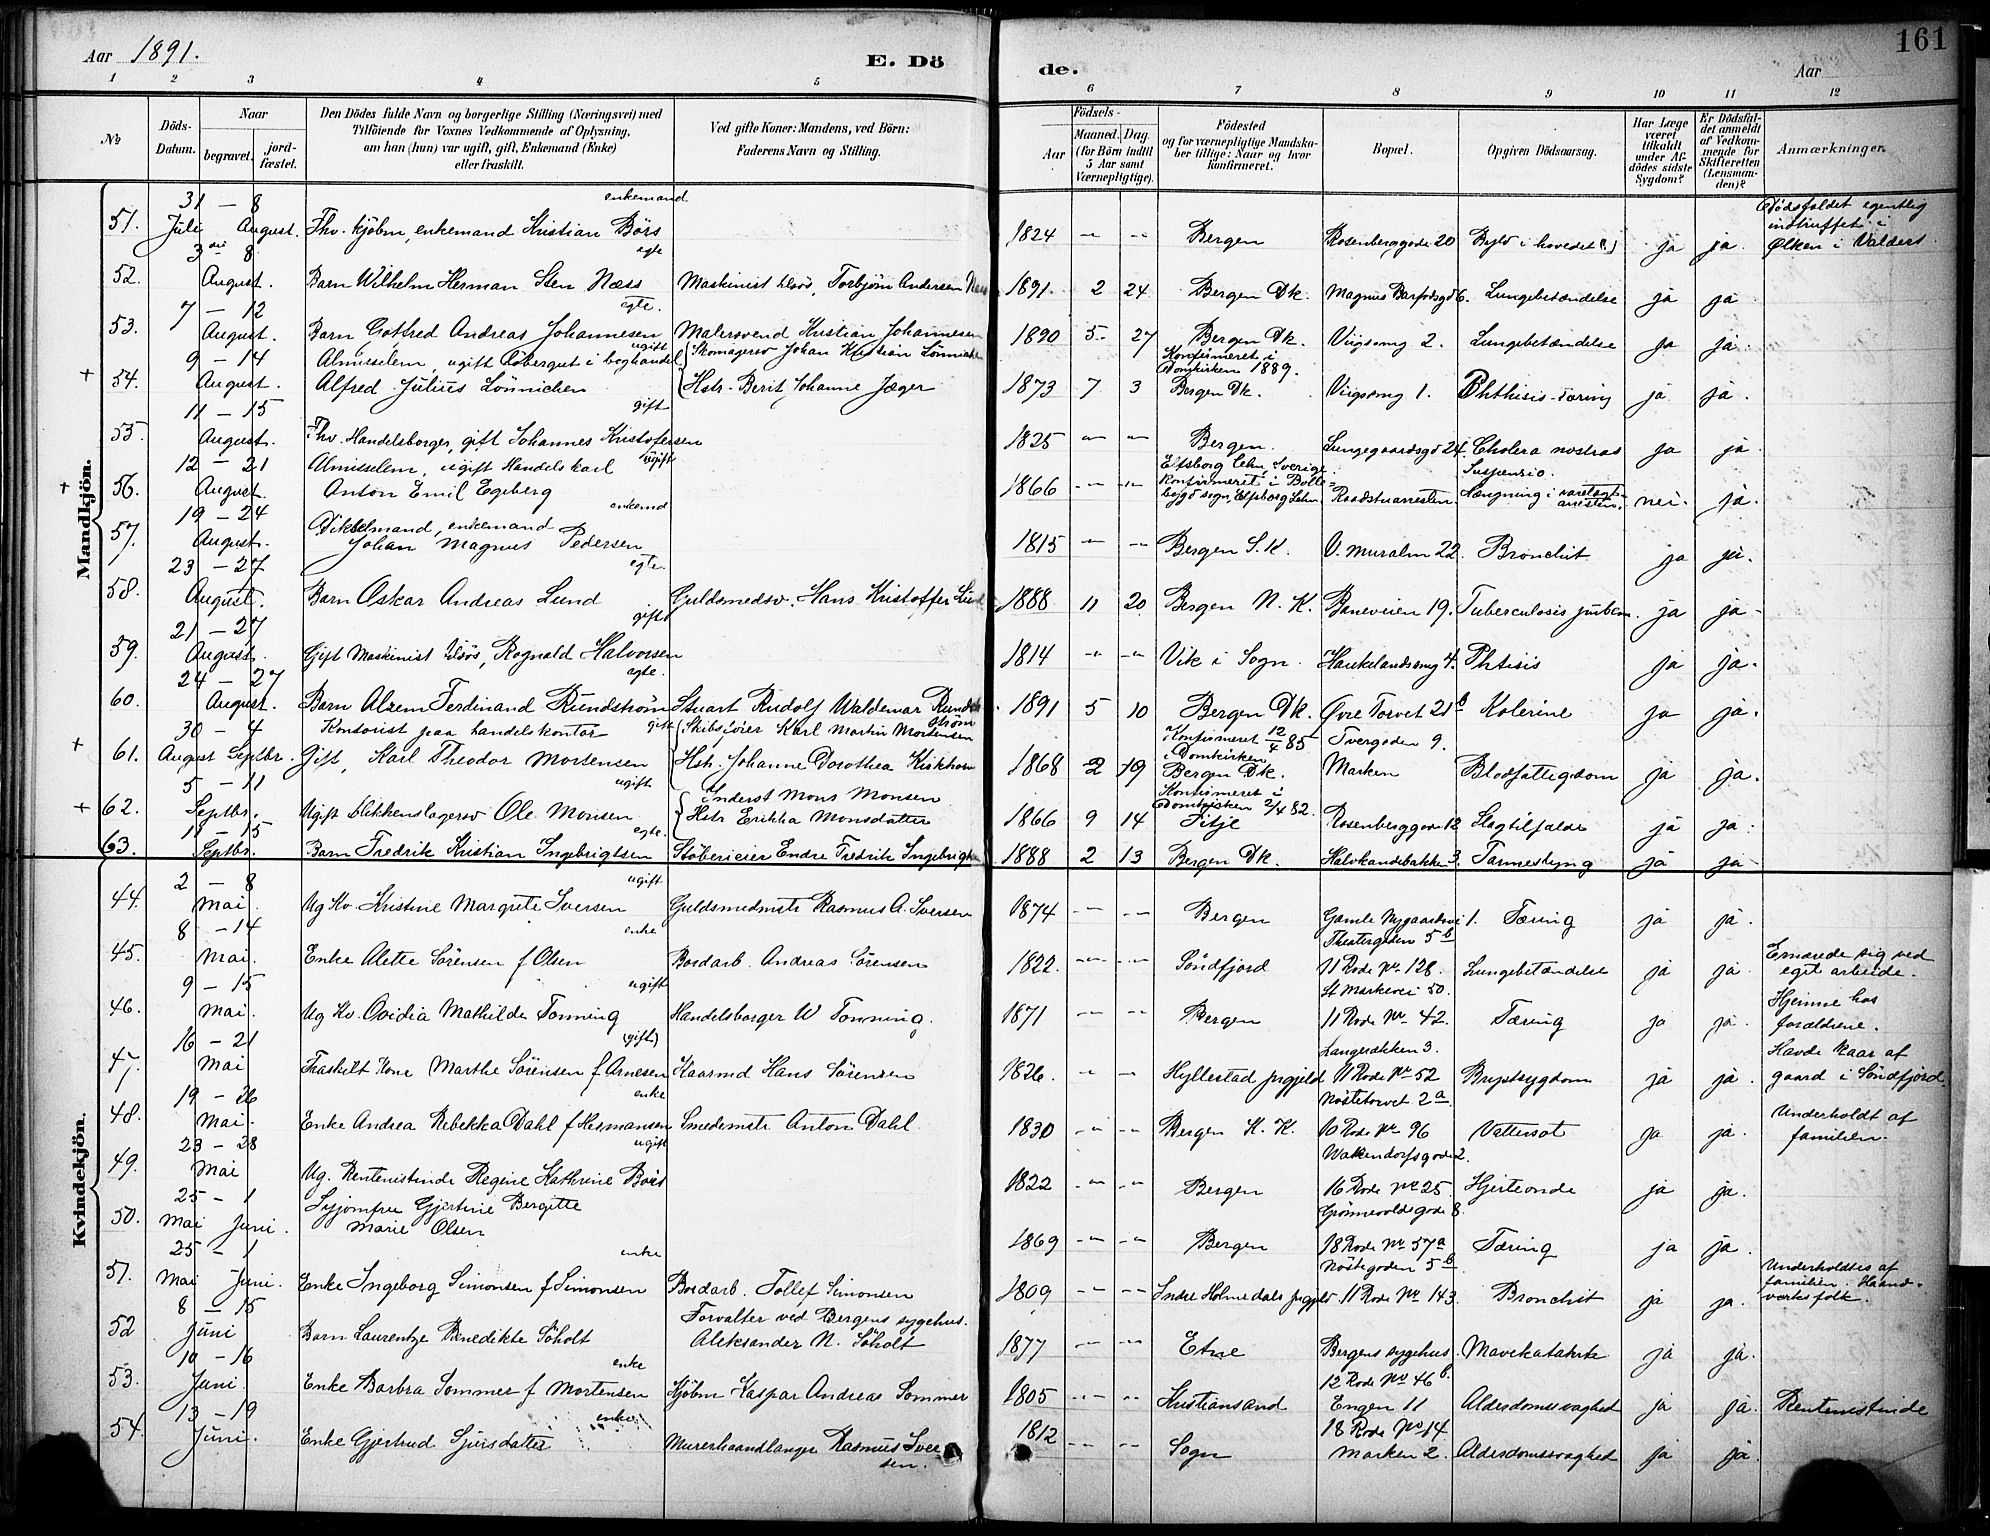 Aar 1891.
E. Dö
de.
Aar
161
1 2 3 4 5 6 7 8 9 10 11 12
No
Döds-Datum.
Naar
begravet.
jord-fæstet.
Den Dödes fulde Navn og borgerlige Stilling (Næringsvei) med
Tilföiende for Voxnes Vedkommende af Oplysning,
om han (hun) var ugift, gift, Enkemand (Enke)
eller fraskilt.
Ved gifte Koner: Mandens, ved Börn:
Faderens Navn og Stilling.
Födsels-
Aar
Maaned. Dag.
(for Börn indtil 5 Aar samt Værnepligtige).
Födested
og for værnepligtige Mandskaber tillige: Naar og hvor konfirmeret.
Bopæl.
Opgiven Dödsaarsag.
Har Læge været tilkaldt under Afdödes sidste Sygdom?
Er Dödsfaldet anmeldt af Vedkommende for Skifteretten (Lensmanden)?
Anmærkninger.
Mandkjön.
51. 31 Juli – 8 August. Fhv. kjöbm, enkemand Kristian Börs enkemand 1824 " " Bergen Rosenberggade 20 i hovedet ja ja Dödsfaldet egentlig indtruffet i Ölken i Valders
52. 3die – 8 August. Barn Wilhelm Herman Sten Næss egte Maskinist Torbjörn Andersen 1891 2 24 Bergen Dk. Magnus Barfodsgd 6. Lungebetændelse ja ja
53. 7 – 12 August. Barn Gotfred Andreas Johannesen egte. Malersvend Kristian Johannesen 1890 5 27 Bergen Dk. Viigsmg 2. Lungebetændelse ja ja
+ 54. 9 – 14 August. Almisselem, ugift i boghandel Alfred Julius Lönnichen ugift Skomagersv Johan Kristian Hstr. Berit Johanne Jæger 1873 7 3 Konfirmeret i Domkirken 1889. Bergen Dk. Viigsmg 1. Phthisis-Tæring ja ja.
55. 11 – 15 August. Fhv. Handelsborger, gift Johannes Kristofersen gift 1825 " " Bergen. Lungegaardsgd 24. Cholera nostras ja ja
+ 56. 12 – 21 August. Almisselem, ugift Handelskarl Anton Emil Egeberg ugift 1866 " " Elfsborg Lehn, Sverige. Konfirmeret i Bollebygd sogn, Elfsborg Lehn. Raadstuarresten Suspensio. Hængning i varetægtarresten. nei. ja.
57. 19 – 24 August. enkemand Johan Magnus Pedersen enkemd 1815 " " Bergen S.K. Ö. muralm 22. Bronchit ja ja.
58. 23 – 27 August. Barn Oskar Andreas Lund egte. Guldsmedsv. Hans Kristoffer Lund 1888 11 20 Bergen N.K. Baneveien 19. Tuberculosis ja ja
59. 21 – 27 August. Gift Maskinist Rognald Halvorsen gift 1814 " " Vik i Sogn. Haukelandsmg 4. Phtisis ja ja.
60. 24 – 27 August. Barn Alzem Ferdinand Rundström egte. Stuart Rudolf Waldemar Rundström 1891 5 10 Bergen Dk. Övre Torvet 21b Kolerine ja ja.
+ 61. 30 – 4 August Septbr. Kontorist paa handelskontor Gift, Karl Theodor Mortensen gift Skibsfører Karl Martin Mortensen Hstr. Johanne Dorothea 1868 2 19 Konfirmeret 12/4 85 i Domkirken Bergen Dk. Tvergaden 9. Marken Blodfattigdom ja ja.
+ 62. 5 – 11 Septbr. Ugift blikkenslagersv Ole Monsen ugift Inderst Mons Monsen Hstr Erikka Monsdatter 1866 9 14 Konfirmeret i Domkirken 2/4 82. Fitje Rosenberggade 12 Slagtilfælde ja ja.
63. – 15 Septbr. Barn Fredrik Kristian Ingebrigtsen egte. Støberieier Endre Fredrik Ingebrigtsen 1888 2 13 Bergen Dk. Halvkandebakken 3. Tarmeslyng ja ja
Kvindekjön.
44. 2 – 8 Mai. Ug Kv. Kristine Margrete Iversen ugift Guldsmedmstr Rasmus A. Iversen 1874 " " Bergen Gamle Nygaardsvei 1. Tæring ja ja.
45. 8 – 14 Mai. Enke Alette Sörensen f Olsen enke Bordarb. Andreas Sörensen 1822. " " Söndfjord Theatergaden 5b 11 Rode No 128. Lungebetændelse ja ja. Ernærede sig ved eget arbeide.
46. 9 – 15 Mai. Ug Kv. Ovidia Mathilde Tonning ugift Handelsborger W Tonning. 1871 " " Bergen St Markevei 50. 11 Rode No 42. Tæring ja ja. Hjemme hos forældrene.
47. 16 – 21 Mai Fraskilt Kone Marthe Sörensen f Arnesen (gift) Haarmd Hans Sörensen 1826. " " Hyllestad prgjeld Langerækken 3. 11 Rode No 52 Brystsygdom ja ja. Havde kaar af gaard i Söndfjord
48. 19 – 26 Mai. Enke Andrea Rebekka Dahl f Hermansen enke Smedemstr Anton Dahl. 1830 " " Bergen K.K. Nöstetorvet 2a. 10 Rode No 96 Vattersot ja ja. Underholdt af familien.
49. 23 – 28 Mai Ug. Rentenistinde Regine Kathrine Börs ugift 1822 " " Bergen Walkendorfsgade 2. 16 Rode No 25. Hjerteonde ja ja.
50. 25 – 1 Mai Juni. Syjomfru Gjertine Bergitte Marie Olsen 1869 " " Bergen Grönnevoldsgade 8. 18 Rode No 57a Tæring ja ja.
51. 25 – 1 Mai Juni. Enke Ingeborg Simonsen f Simonsen enke Bordarb. Tollef Simonsen 1809 " " Indre Holmedals prgjeld Nöstegaden 5b. 11 Rode No 143. Bronchit ja ja. Underholdtes af familien. Haandverksfolk.
52 8 – 15 Juni Barn Laurentze Benedikte Söholt Forvalter ved Bergens sygehus. Aleksander N. Söholt 1877 " " Etne Bergens sygehus. Mavekatarrh ja ja.
53. 10 – 16 Juni. Enke Barbra Sommer f Mortensen enke Kjöbm Kaspar Andreas Sommer 1805 " " Kristiansand 12 Rode No 46b. Engen 11 Alderdomssvaghed ja ja. Rentenistinde
54. 13 – 19 Juni. Enke Gjertrud Sjursdatter enke Murerhaandlanger Rasmus Iversen. 1812 " " Sogn 18 Rode No 14 Marken 2. Alderdomssvaghed ja ja.